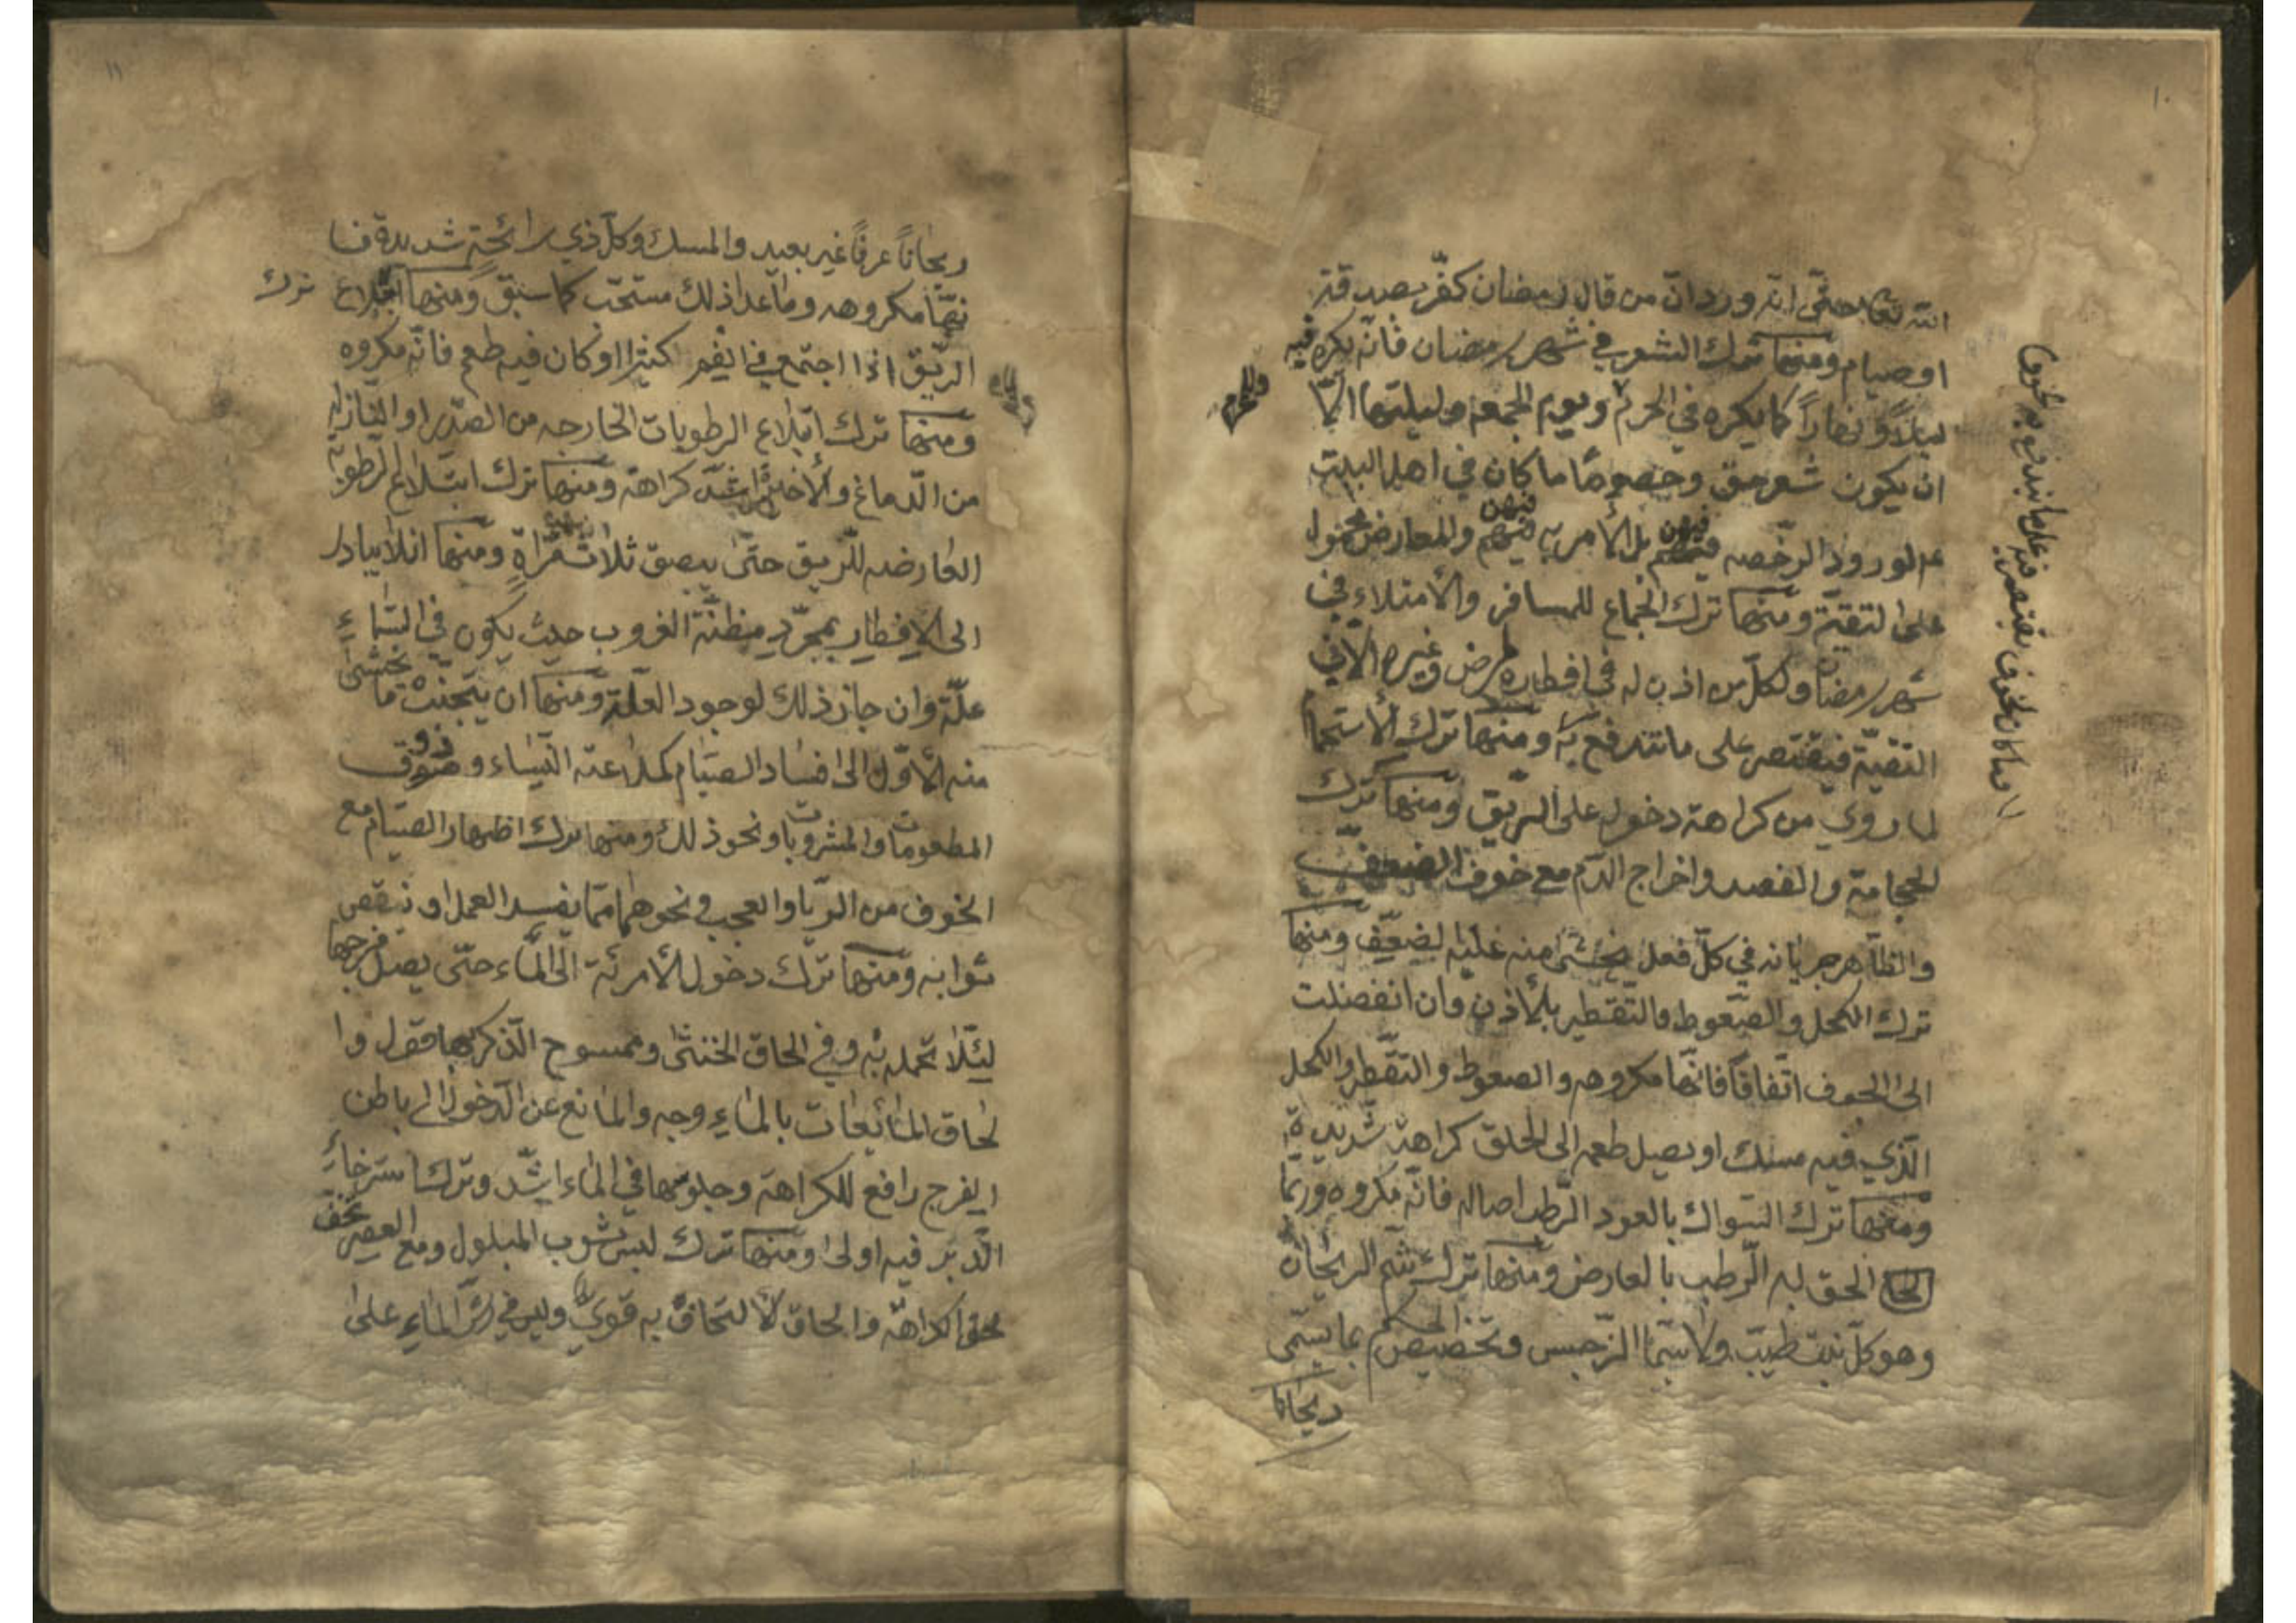 ١٠
الله تعا حتّى انّه ورد انّ من قال رمضان كفّر بصدقة
او صيام ومنها ترك الشعر في شهر رمضان فانّه يكره فيه
ليلاً ونهاراً كما يكره في الحرم ويوم الجمعة وليلتها الّا
ان يكون شعر حق وخصوصًا ما كان في اهل البيت
عم لورود الرخصه فيهن بل الأمر به فيهن والمعارض محمول
على التقيّة ومنها ترك الجماع للمسافر والأمتلاء في
شهر رمضان ولكلّ من اذن له في افطاره لمرض وغيره الّا في
التقيّة فيقتصر على ما تندفع به ومنها ترك الأستحما
لما روي من كراهة دخوله على الرّيق ومنها ترك
الحجامة والفصد واخراج الدّم مع خوف الضعف
والظّاهر جريانه في كلّ فعل يخشى منه غلبة لضعّف ومنها
ترك الكحل والصّعوط والتّقطير بلأذن وان انفصلت
الى الجوف اتّفاقًا فانّها مكروهه والصعوط والتقّطر والكحل
الّذي فيه مسك او يصل طعمه الى الحلق كراهة شديدة
ومنها ترك السّواك بالعود الرّطب اصاله فانّه مكروه وربّما
الحق به الرّطب بالعارض ومنها ترك شّم الريحان
وهو كلّ نبت طيّب ولا سيّما النّرجس وتخصيص الحكم بما يسمّى
ريحانا
وللمحرم
١١
ريحاناً عرفاً غير بعيد والمسك وكلّ ذي رائحة شديدة فا
نهّا مكروهه وما عدا ذلك مستحّب كما سبق ومنها ابتلاع ترك
الريّق اذا اجتمع في الفم كثيرا او كان فيه طعم فانّه مكروه
ومنها ترك ابتلاع الرطوبات الخارجه من الصّدر او النازلة
من الّدماغ والأخيرة اشّد كراهة ومنها ترك ابتلاع الرطوبة
العارضه للّريق حتّى يبصق ثلاث مرّاة ومنها ان لا يبادر
الى الإفطار بمجرّد مظنّة الغروب حيث يكون في السّماءِ
علّة وان جاز ذلك لوجود العلّة ومنها ان يتجنّب ما يخشى
منه الأوّل الى افساد الصيّام كملاعبة النّساء وذوق
المطعومات والمشروبات ونحو ذلك ومنها ترك اظهار الصيّام مع
الخوف من الرّيا والعجب ونحوهما ممّا يفسد العمل او ينقص
ثوابه ومنها ترك دخول الأمرئة الى المآء حتّى يصل فرجها
لئلّا تحمله به وفي الحاق الخنثى وممسوح الّذكر بها قول وا
لحاق المائعات بالماءِ وجه والمانع عن الّدخول الى باطن
الفرج رافع للكراهة وجلوسها في الماء اشّد وترك استرخاءِ
الّدبر فيه اولى ومنها ترك لبس ثوب المبلول ومع العصر تخف
الكراهّة والحاق الألتحاف به قويّ وليس في رشّ الماءِ على